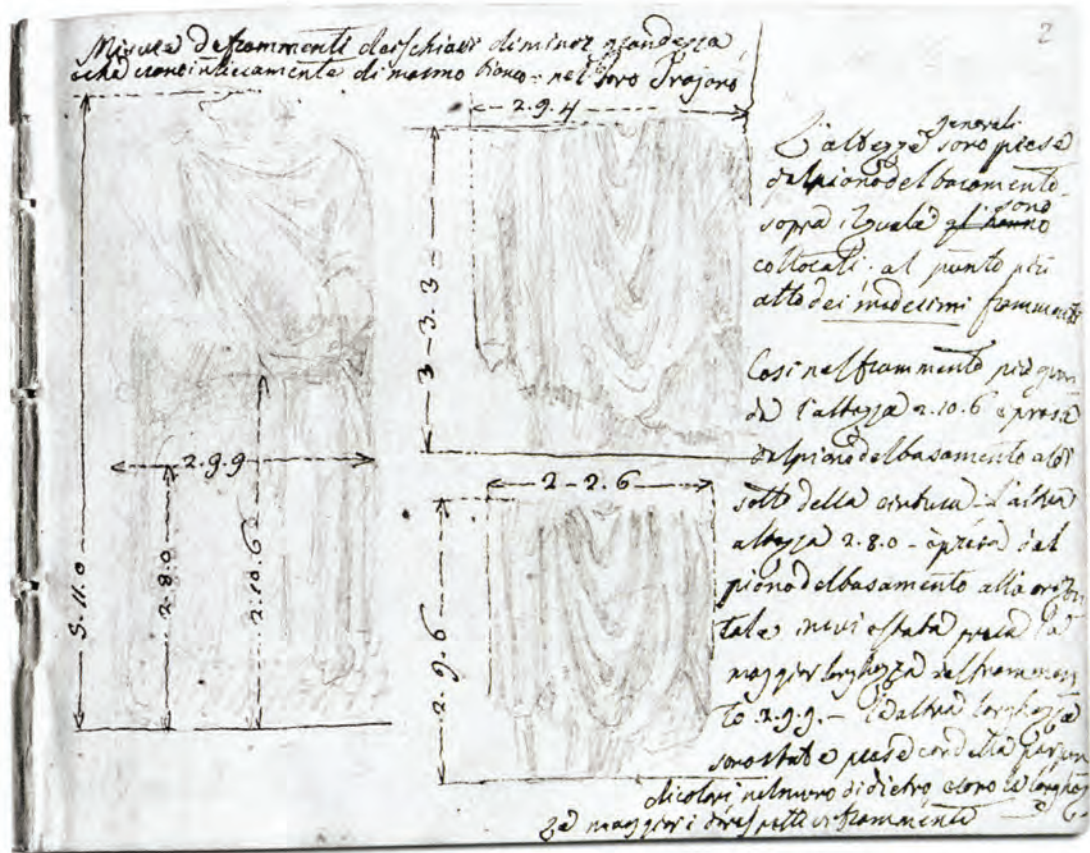 2
Misure de frammenti dei schiavi di minor grandezza,
e che erono intieramente di marmo bianco - nel Foro Trajano
2.9.4
5.11.0
2.8.0
2.9.9
2.10.6
3-3.3
2-2.6
2.9.6
generali
L'altezze sono prese
dal piano del basamento
sono
sopra il quale gl'hanno
collocati. al punto più
alto dei medesimi frammenti
Cosi nel frammento più gran
de l'altezza 2.10.6 è presa
dal piano del basamento al di
sotto della cintura - L'altra
altezza 2.8.0 - è presa dal
piano del basamento alla orizon
tale in cui è stata presa la
maggior larghezza del frammen
to 2.9.9. - Le altre larghezze
sono state prese con delle perpen
dicolari, nel muro di dietro, e sono le larghez
ze maggiori di rispettivi frammenti